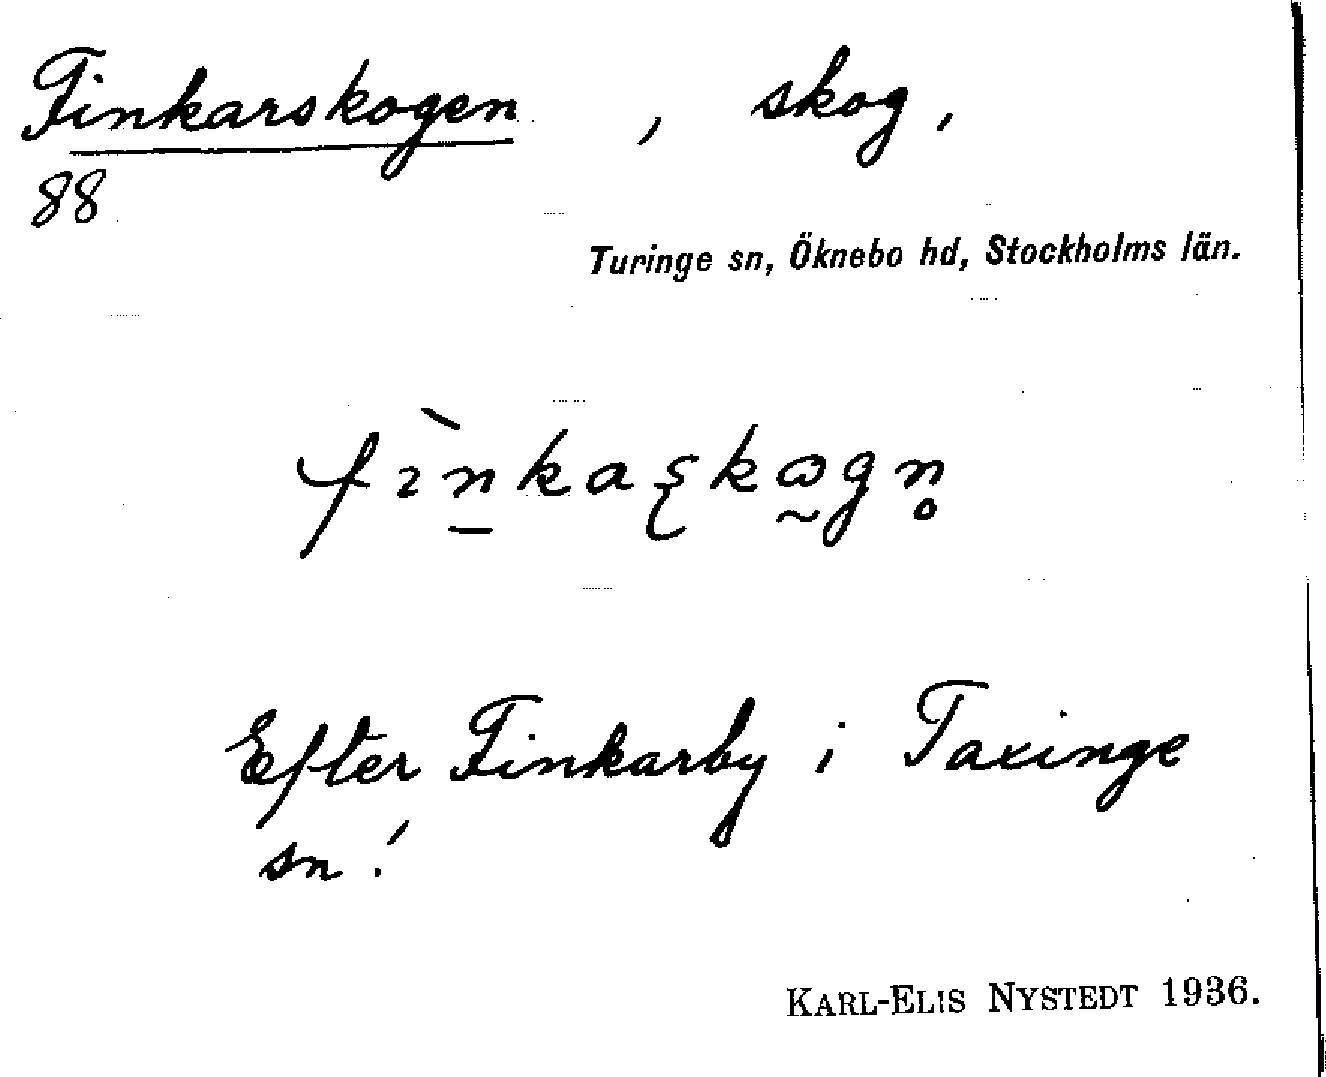 Finkarskogen, skog,
88
Turinge sn, Öknebo hd, Stockholms län.
fìn̠kaʂkω̰gn̥
Efter Finkarby i Taxinge
sn!
KARL-ELIS NYSTEDT 1936.